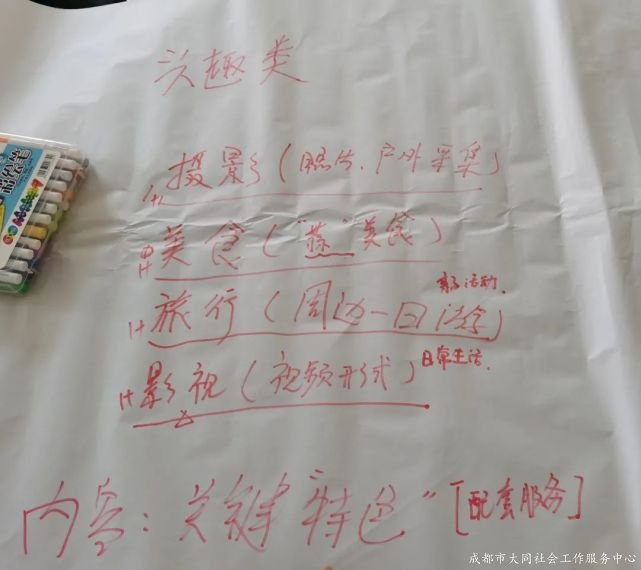 兴趣类
摄影(照片、户外采集)
美食("蒸"美食)
亲子活动
旅行(周边一日游)
影视(视频形式)
日常生活
内容：关键"特色"[配套服务]
成都市大同社会工作服务中心